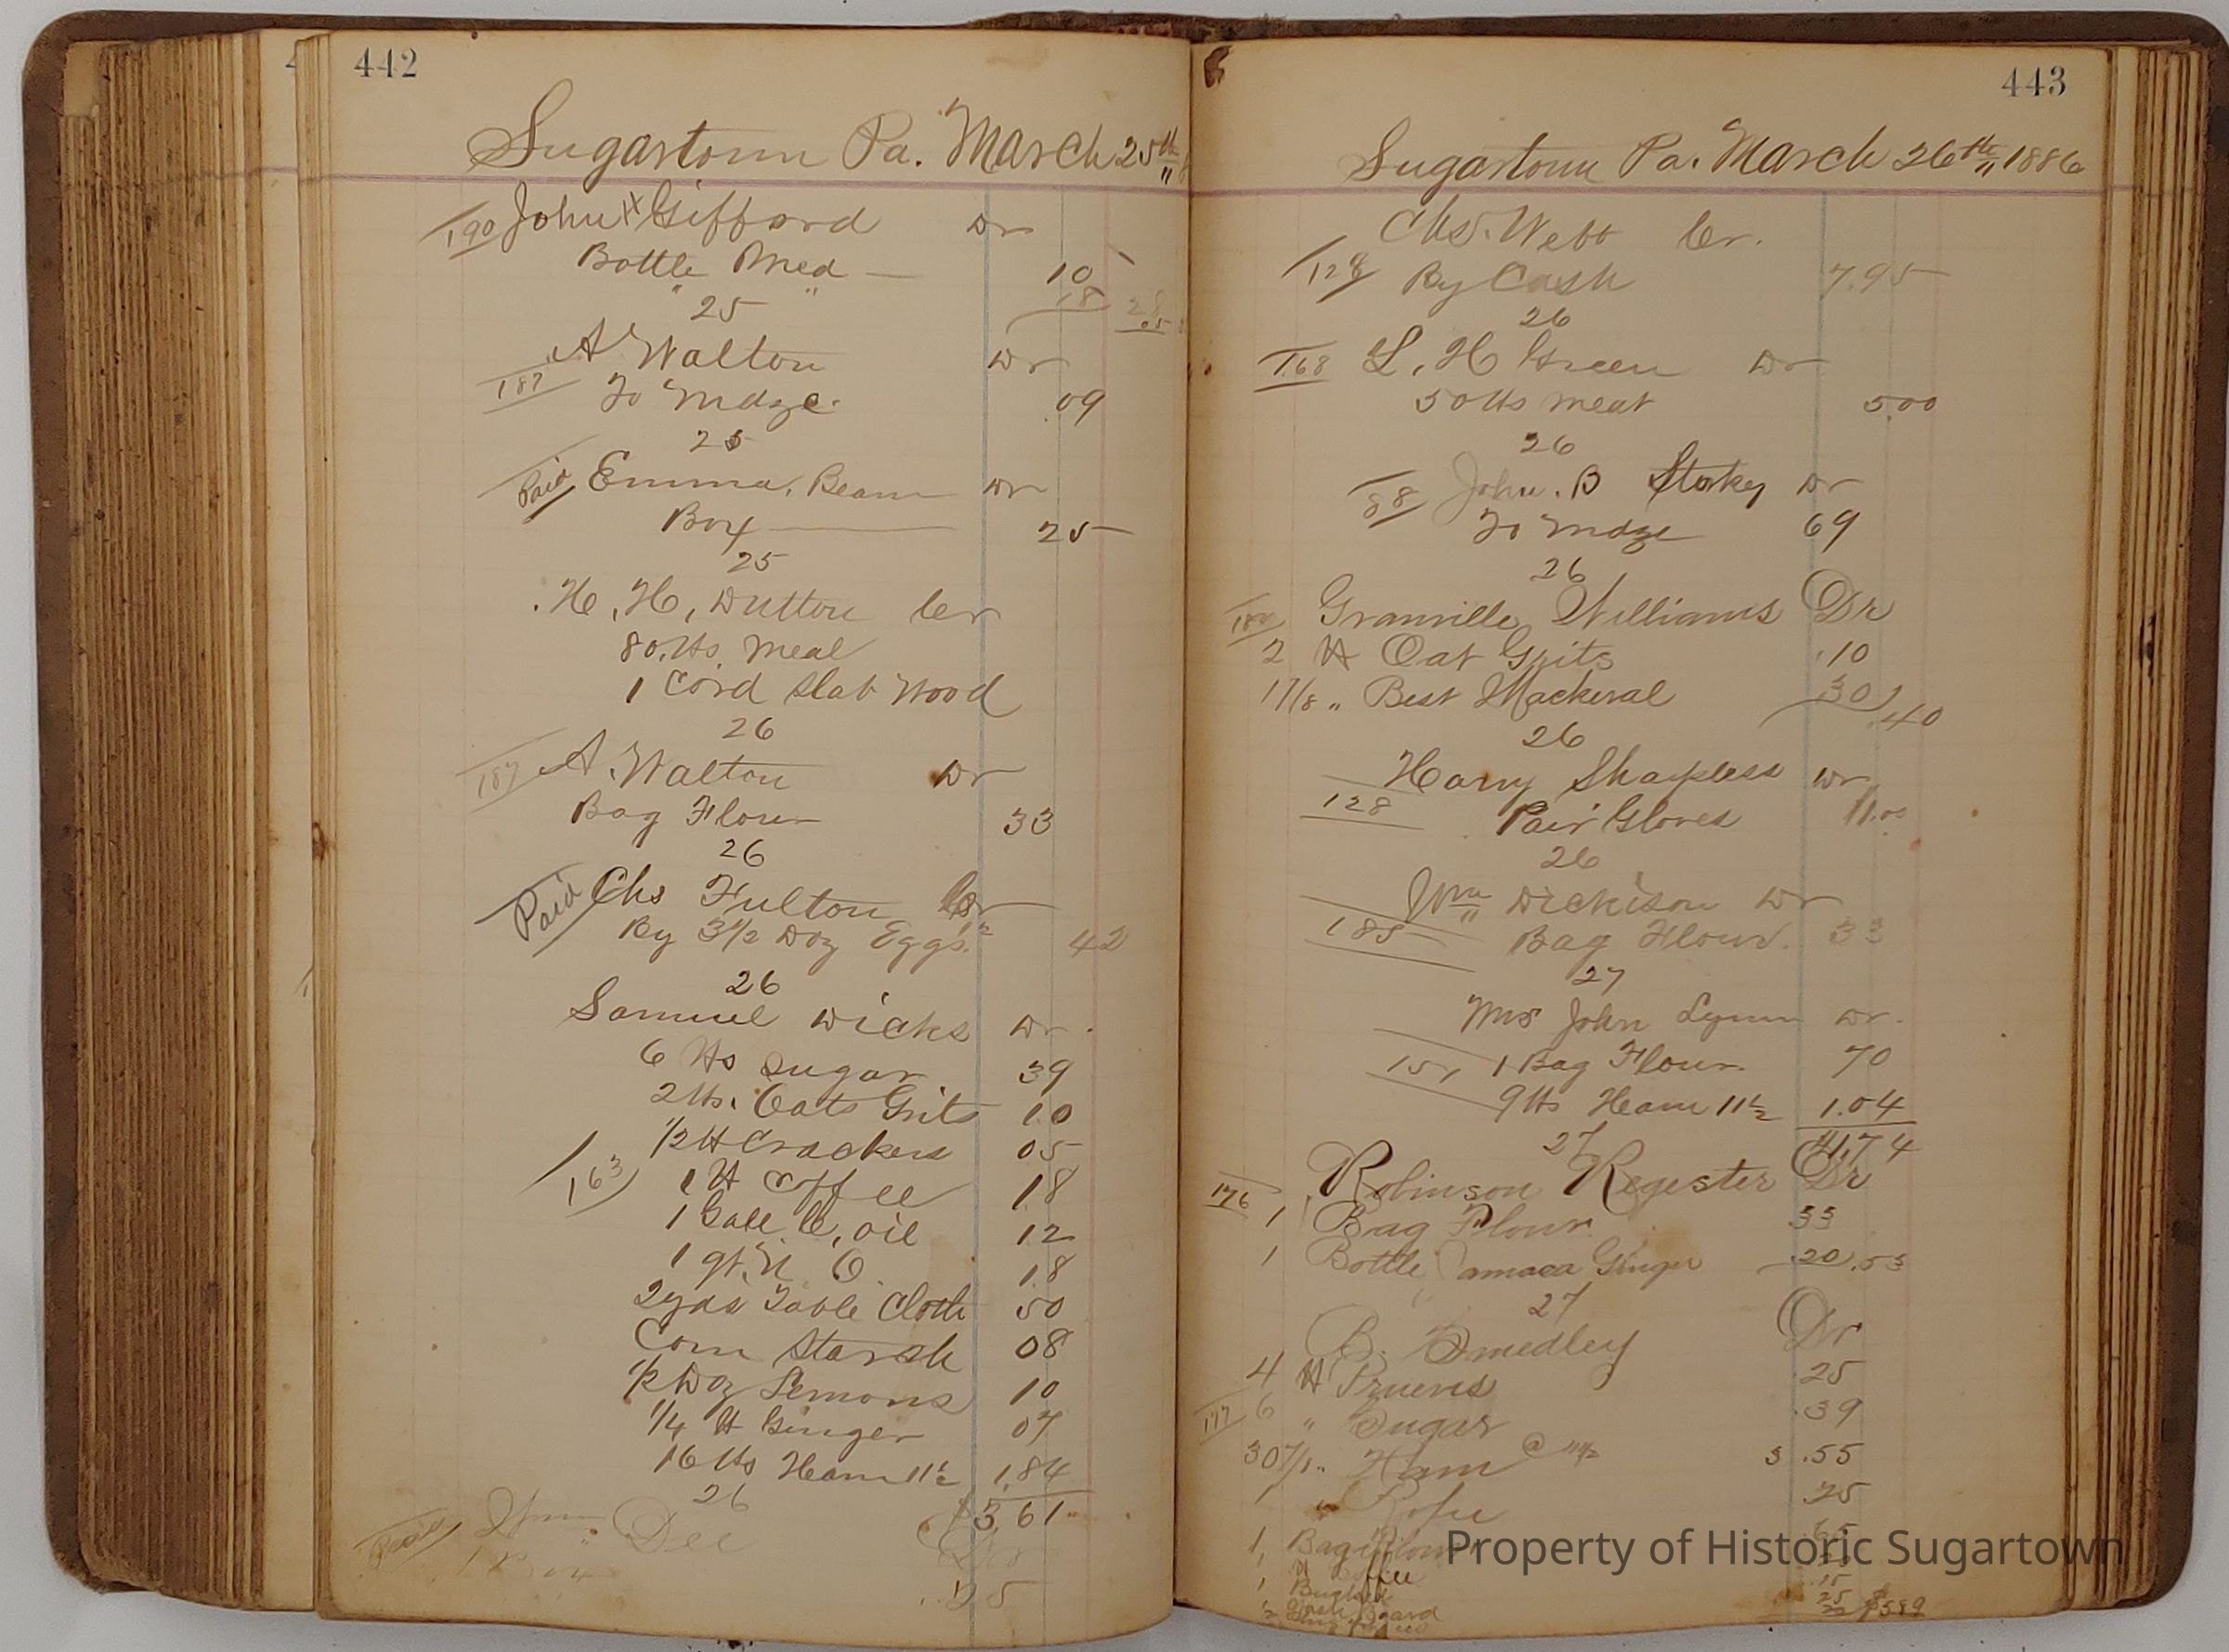 442
Sugartown Pa. March 25th
190 John Gifford Dr
Bottle Med 10
" " 18 28
25
A Walton Dr
187 To Mdze. .09
25
Paid Emma, Beam Dr
Box 25
25
H, H, Dutton Cr
80 lbs Meal
1 Cord Slab Wood
26
187 A. Walton Dr
Bag Flour 33
26
Paid Chs Fulton Cr
By 3 1/2 Doz Eggs. 42
26
Samuel Wicks Dr.
6 lbs Sugar 39
2 lbs. Oats Grits 10
1/2 lb Crackers 05
163 1 lb Coffee 18
1 Gall C, oil 12
1 qt. N O. 18
2 yds Table Cloth 50
Corn Starch 08
1/2 Doz Lemons 10
1/4 lb Ginger 07
16 lbs Ham 11 1/2 1.84
$3 61
26
Paid Wm Dee Dr
1 Box .25
443
Sugartown Pa. March 26th, 1886
Chs. Webb Cr.
128 By Cash 7.95
26
168 L, H Green Dr
50 lbs meat 5.00
26
88 John. B Storkey Dr
To Mdze 69
26
Granville Williams Dr
2 lb Oat Grits .10
1 7/8 " Best Mackeral 30 .40
26
Harry Sharpless Dr
128 Pair Gloves 1.00
26
Wm Dickison Dr
185 Bag Flour. 33
27
Mrs John Lynn Dr.
151 1 Bag Flour 70
9 lbs Ham 11 1/2 1.04
1.74
27
176 Robinson Regester Dr
1 Bag Flour 33
1 Bottle Jamaca Ginger .20 .53
27
B. Smedley Dr
4 lb Pruens .25
177 6 " Sugar .39
30 7/8 " Ham @ 11 1/2 3 .55
1 " Rope 25
1 Bag Flour
1 lb Coffee
1 Bucket 15
25 $5.89
Property of Historic Sugartown